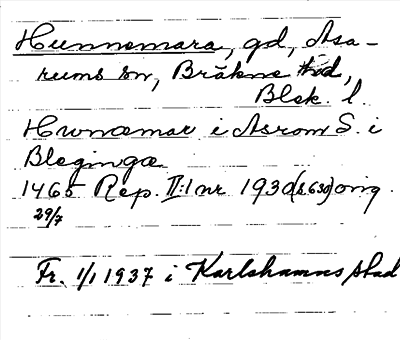 Hunnemara, gd, Asa-
rums sn, Bräkne hd,
Blek. l.
Hwnæmar i Asrom S. i
Bleginge
1465 Rep. II:1 nr 1930 (s. 630) orig.
29/7
Fr. 1/1 1937 i Karlshamns stad